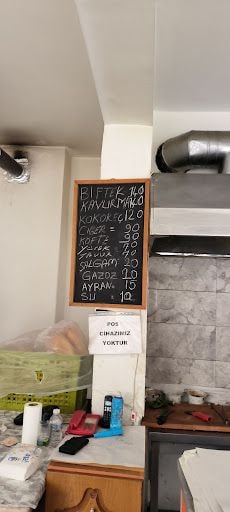 BİFTEK 140
KAVURMA 140
KOKOREÇ 120
CİĞER = 90
KÖFTE 90
YÜREK 70
TAVUK 70
ŞALGAM 20
GAZOZ 20
AYRAN = 15
SU = 10
POS
CİHAZIMIZ
YOKTUR